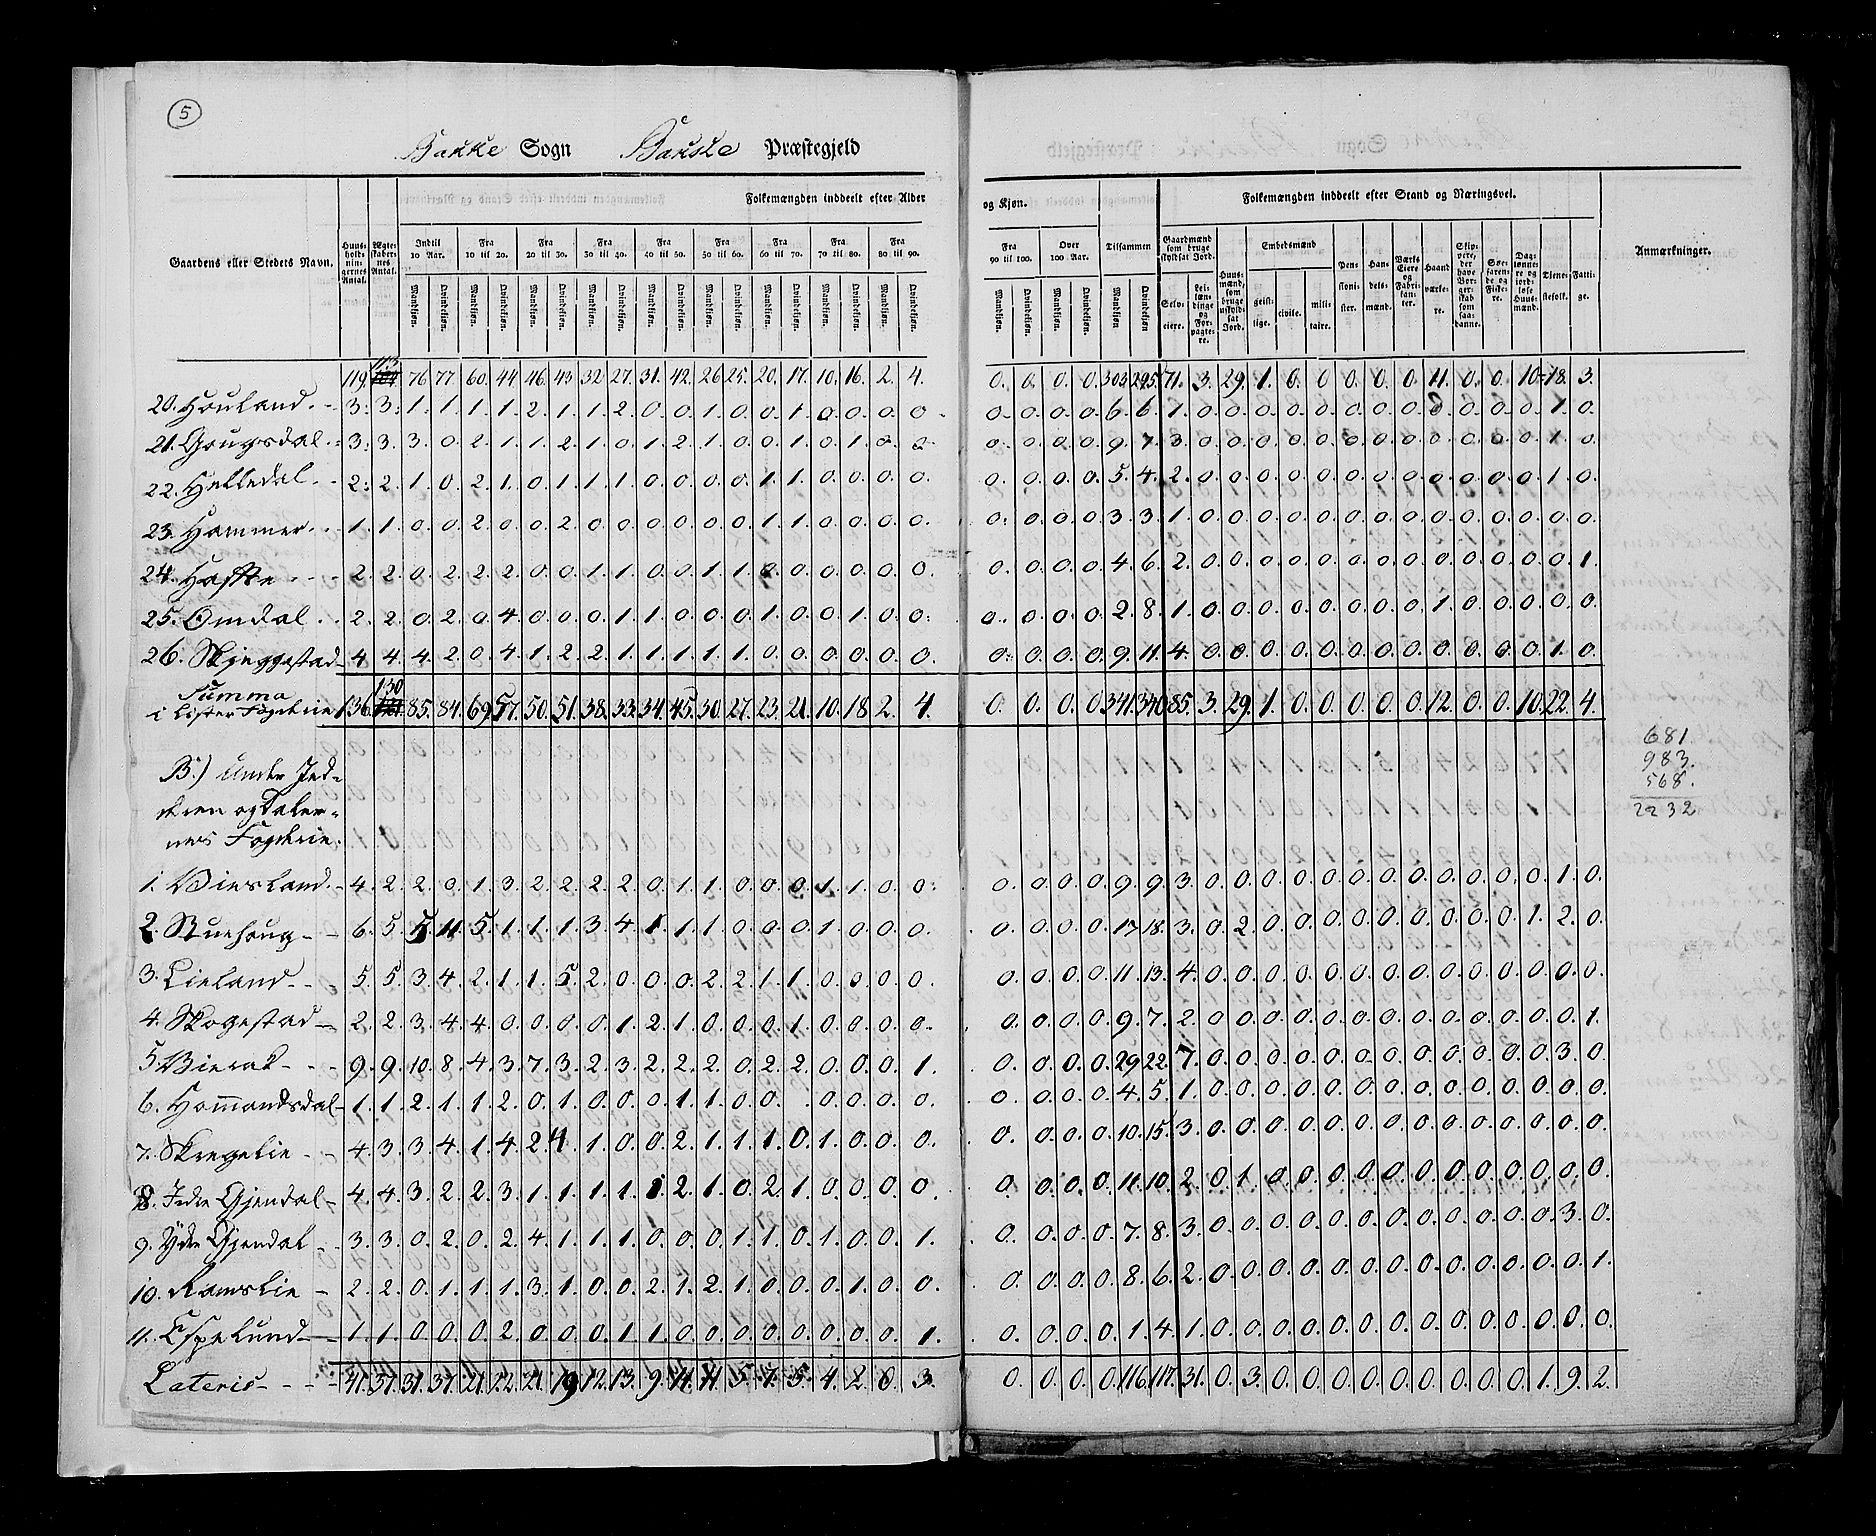 5
Bakke Sogn Bakke Præstegjeld
Gaardens eller Stedets Navn. Huus-holdnin-gernes Antal. Ægte-skaber-nes Antal. Folkemængden inddeelt efter Alder og Kjøn. Folkemængden inddeelt efter Stand og Næringsvei. Anmærkninger.
Indtil 10 Aar. Fra 10 til 20. Fra 20 til 30. Fra 30 til 40. Fra 40 til 50. Fra 50 til 60. Fra 60 til 70. Fra 70 til 80. Fra 80 til 90. Fra 90 til 100. Over 100 Aar. Tilsammen
Mandkjøn. Qvindekjøn. Mandkjøn. Qvindekjøn. Mandkjøn. Qvindekjøn. Mandkjøn. Qvindekjøn. Mandkjøn. Qvindekjøn. Mandkjøn. Qvindekjøn. Mandkjøn. Qvindekjøn. Mandkjøn. Qvindekjøn. Mandkjøn. Qvindekjøn. Mandkjøn. Qvindekjøn. Mandkjøn. Qvindekjøn. Mandkjøn Qvindekjøn
Gaardmænd som bruge skyldsat Jord. Selv-eiere. Lei-læn-dinge og For-pagte-re. Huus-mænd, som bruge uskyld-sat Jord. Embedsmænd geist-lige. civile. mili-taire. Pen-sioni-ster. Han-dels-mænd. Værks Eiere og Fabri-kan-ter. Haand værke-re. Skip-pere, der have Bor-ger-skab som saa-danne. Søe-faren-de og Fiske-re. Dag-lønne-re og jord-løse Huus-mænd. Tjene-stefolk. Fatti-ge.
119. 113 76 77. 60. 44. 46. 43. 32. 27. 31. 42. 26 25. 20. 17. 10. 16. 2. 4. 0. 0. 0. 0. 303. 295. 71. 3. 29. 1. 0. 0 0. 0. 0. 11. 0. 0. 10. 18. 3.
20. Houland. 3. 3. 1. 1. 1. 1. 2. 1. 1. 2. 0. 0. 1. 0. 0. 1. 0. 0. 0. 0 0. 0. 0. 0. 6. 6. 1. 0. 0. 0. 0. 0. 0. 0. 0. 0. 0. 0. 0. 1. 0.
21. Gougsdal. 3. 3. 3. 0. 2. 1. 1. 2. 1. 0. 1. 2. 1. 0. 0. 1. 0. 1. 0. 0. 0. 0. 0. 0. 9. 7. 3. 0. 0. 0. 0. 0. 0. 0. 0. 0. 0. 0. 0. 1. 0.
22. Helledal. 2. 2. 1. 0. 2. 1. 0. 1. 1. 1. 0. 0. 0. 0. 1. 1. 0. 0. 0. 0. 0. 0. 0. 0. 5. 4. 2. 0. 0. 0. 0. 0. 0. 0. 0. 0. 0. 0. 0. 1. 0.
23. Hammer. 1. 1. 0. 0. 2. 0. 0. 2. 0. 0. 0. 0. 0. 0. 1. 1. 0. 0. 0. 0. 0. 0. 0. 0. 3. 3. 1. 0. 0. 0. 0. 0. 0. 0. 0. 0. 0. 0. 0. 0. 0.
24. 2. 2. 0. 2. 2. 2. 0. 0. 1. 1. 0. 0. 1. 1. 0. 0. 0. 0. 0. 0. 0. 0. 0. 0. 4. 6. 2. 0. 0. 0. 0. 0. 0. 0. 0. 0. 0. 0. 0. 0. 1.
25. Omdal. 2. 2. 0. 2. 0. 4. 0. 0. 0. 1. 1. 0. 0. 0. 1. 0. 0. 1. 0. 0. 0. 0. 0. 0. 2. 8. 1. 0. 0. 0. 0. 0. 0. 0. 0. 1. 0. 0. 0. 0. 0.
26. Skjeggestad 4. 4. 4. 2. 0. 4. 1. 2. 2. 1. 1. 1. 1. 1. 0. 0. 0. 0. 0. 0. 0. 0. 0. 0. 9. 11. 4. 0. 0. 0. 0. 0. 0. 0. 0. 0. 0. 0. 0. 1. 0.
Summa
i Lister Fogderie 136. 130 85. 84. 69. 57. 50. 51. 38. 33. 34. 45. 30. 27. 23. 21. 10. 18. 2. 4. 0. 0. 0. 0. 341. 340. 85. 3. 29. 1. 0. 0. 0. 0. 0. 12. 0. 0. 10. 22. 4.
681
983.
568.
2232
B.) Under Jed-
deren og Daler-
nes Fogderie.
1. Virsland. 4. 2. 2. 0. 1. 3. 2. 2. 2. 2. 0. 1. 1. 0. 0. 0. 1. 1. 0. 0. 0. 0. 0. 0. 9. 9. 3. 0. 0. 0. 0. 0. 0. 0. 0. 0. 0. 0. 0. 1. 0.
2. Stuehoug 6. 5. 5. 11. 5. 1. 1. 1. 3. 4. 1. 1. 1. 0. 0. 0. 1. 0. 0. 0. 0. 0. 0. 0. 17. 18. 3. 0. 2. 0. 0. 0. 0. 0. 0. 0. 0. 0. 1. 2. 0.
3. Lieland 5. 5. 3. 4. 2. 1. 1. 5. 2. 0. 0. 0. 2. 2. 1. 1. 0. 0. 0. 0. 0. 0. 0. 0. 11. 13. 4. 0. 0. 0. 0. 0. 0. 0. 0. 0. 0. 0. 0. 0. 0.
4. Skogestad 2. 2. 3. 4. 4. 0. 0. 0. 0. 1. 2. 1. 0. 0. 0. 1. 0. 0. 0. 0. 0. 0. 0. 0. 9. 7. 2. 0. 0. 0. 0. 0. 0. 0. 0. 0. 0. 0. 0. 0. 1.
5. Vierak 9. 9. 10. 8. 4. 3. 7. 3. 2. 3. 2. 2. 2. 0. 2. 2. 0. 0. 0. 1. 0. 0. 0. 0. 29. 22. 7. 0. 0. 0. 0. 0. 0. 0. 0. 0. 0. 0. 0. 3. 0.
6. Homandsdal 1. 1. 2. 1. 1. 2. 0. 1. 0. 0. 0. 1. 1. 0. 0. . 0. 0. 0. 0. 0. 0. 0. 0. 4. 5. 1. 0. 0. 0. 0. 0. 0. 0. 0. 0. 0. 0. 0. 0. 0.
7. Skregelie 4. 3. 3. 4. 1. 4. 2. 4. 1. 0. 0. 2. 1. 1. 1. 0. 1. 0. 0. 0. 0. 0. 0. 0. 10. 15. 3. 0. 0. 0. 0. 0. 0. 0. 0. 0. 0. 0. 0. 0. 0.
8. Jdre Gjendal 4. 4. 3. 2. 2. 3. 1. 1. 1. 1. 1. 2. 1. 0. 2. 1. 0. 0. 0. 0. 0. 0. 0. 0. 11. 10. 2. 0. 1. 0. 0. 0. 0. 0. 0. 0. 0. 0. 0. 0. 0.
9. Ydre Gjendal 3. 3. 0. 2. 0. 2. 4. 1. 1. 1. 0. 0. 0. 1. 1. 0. 1. 0. 0. 1. 0. 0. 0. 0. 7. 8. 3. 0. 0. 0. 0. 0. 0. 0. 0. 0. 0. 0. 0. 3. 0.
10. Ramslie 2. 2. 0. 1. 1. 1. 3. 1. 0. 0. 2. 1. 2. 1. 0. 0. 0. 1. 0. 0. 0. 0. 0. 0. 8. 6. 2. 0. 0. 0. 0. 0. 0. 0. 0. 0. 0. 0. 0. 0. 1.
11. Espelund 1. 1. 0. 0. 0. 2. 0. 0. 0. 1. 1. 0. 0. 0. 0. 0. 0. 0. 0. 1. 0. 0. 0. 0. 1. 4. 1. 0. 0. 0. 0. 0. 0. 0. 0. 0. 0. 0. 0. 0. 0.
Lateris 41. 37. 31. 37. 21. 22. 21. 19. 12. 13. 9. 11. 11. 5. 7. 5. 4. 2. 0. 3. 0. 0. 0. 0. 116. 117. 31. 0. 3. 0. 0. 0. 0. 0. 0. 0. 0. 0. 1. 9. 2.